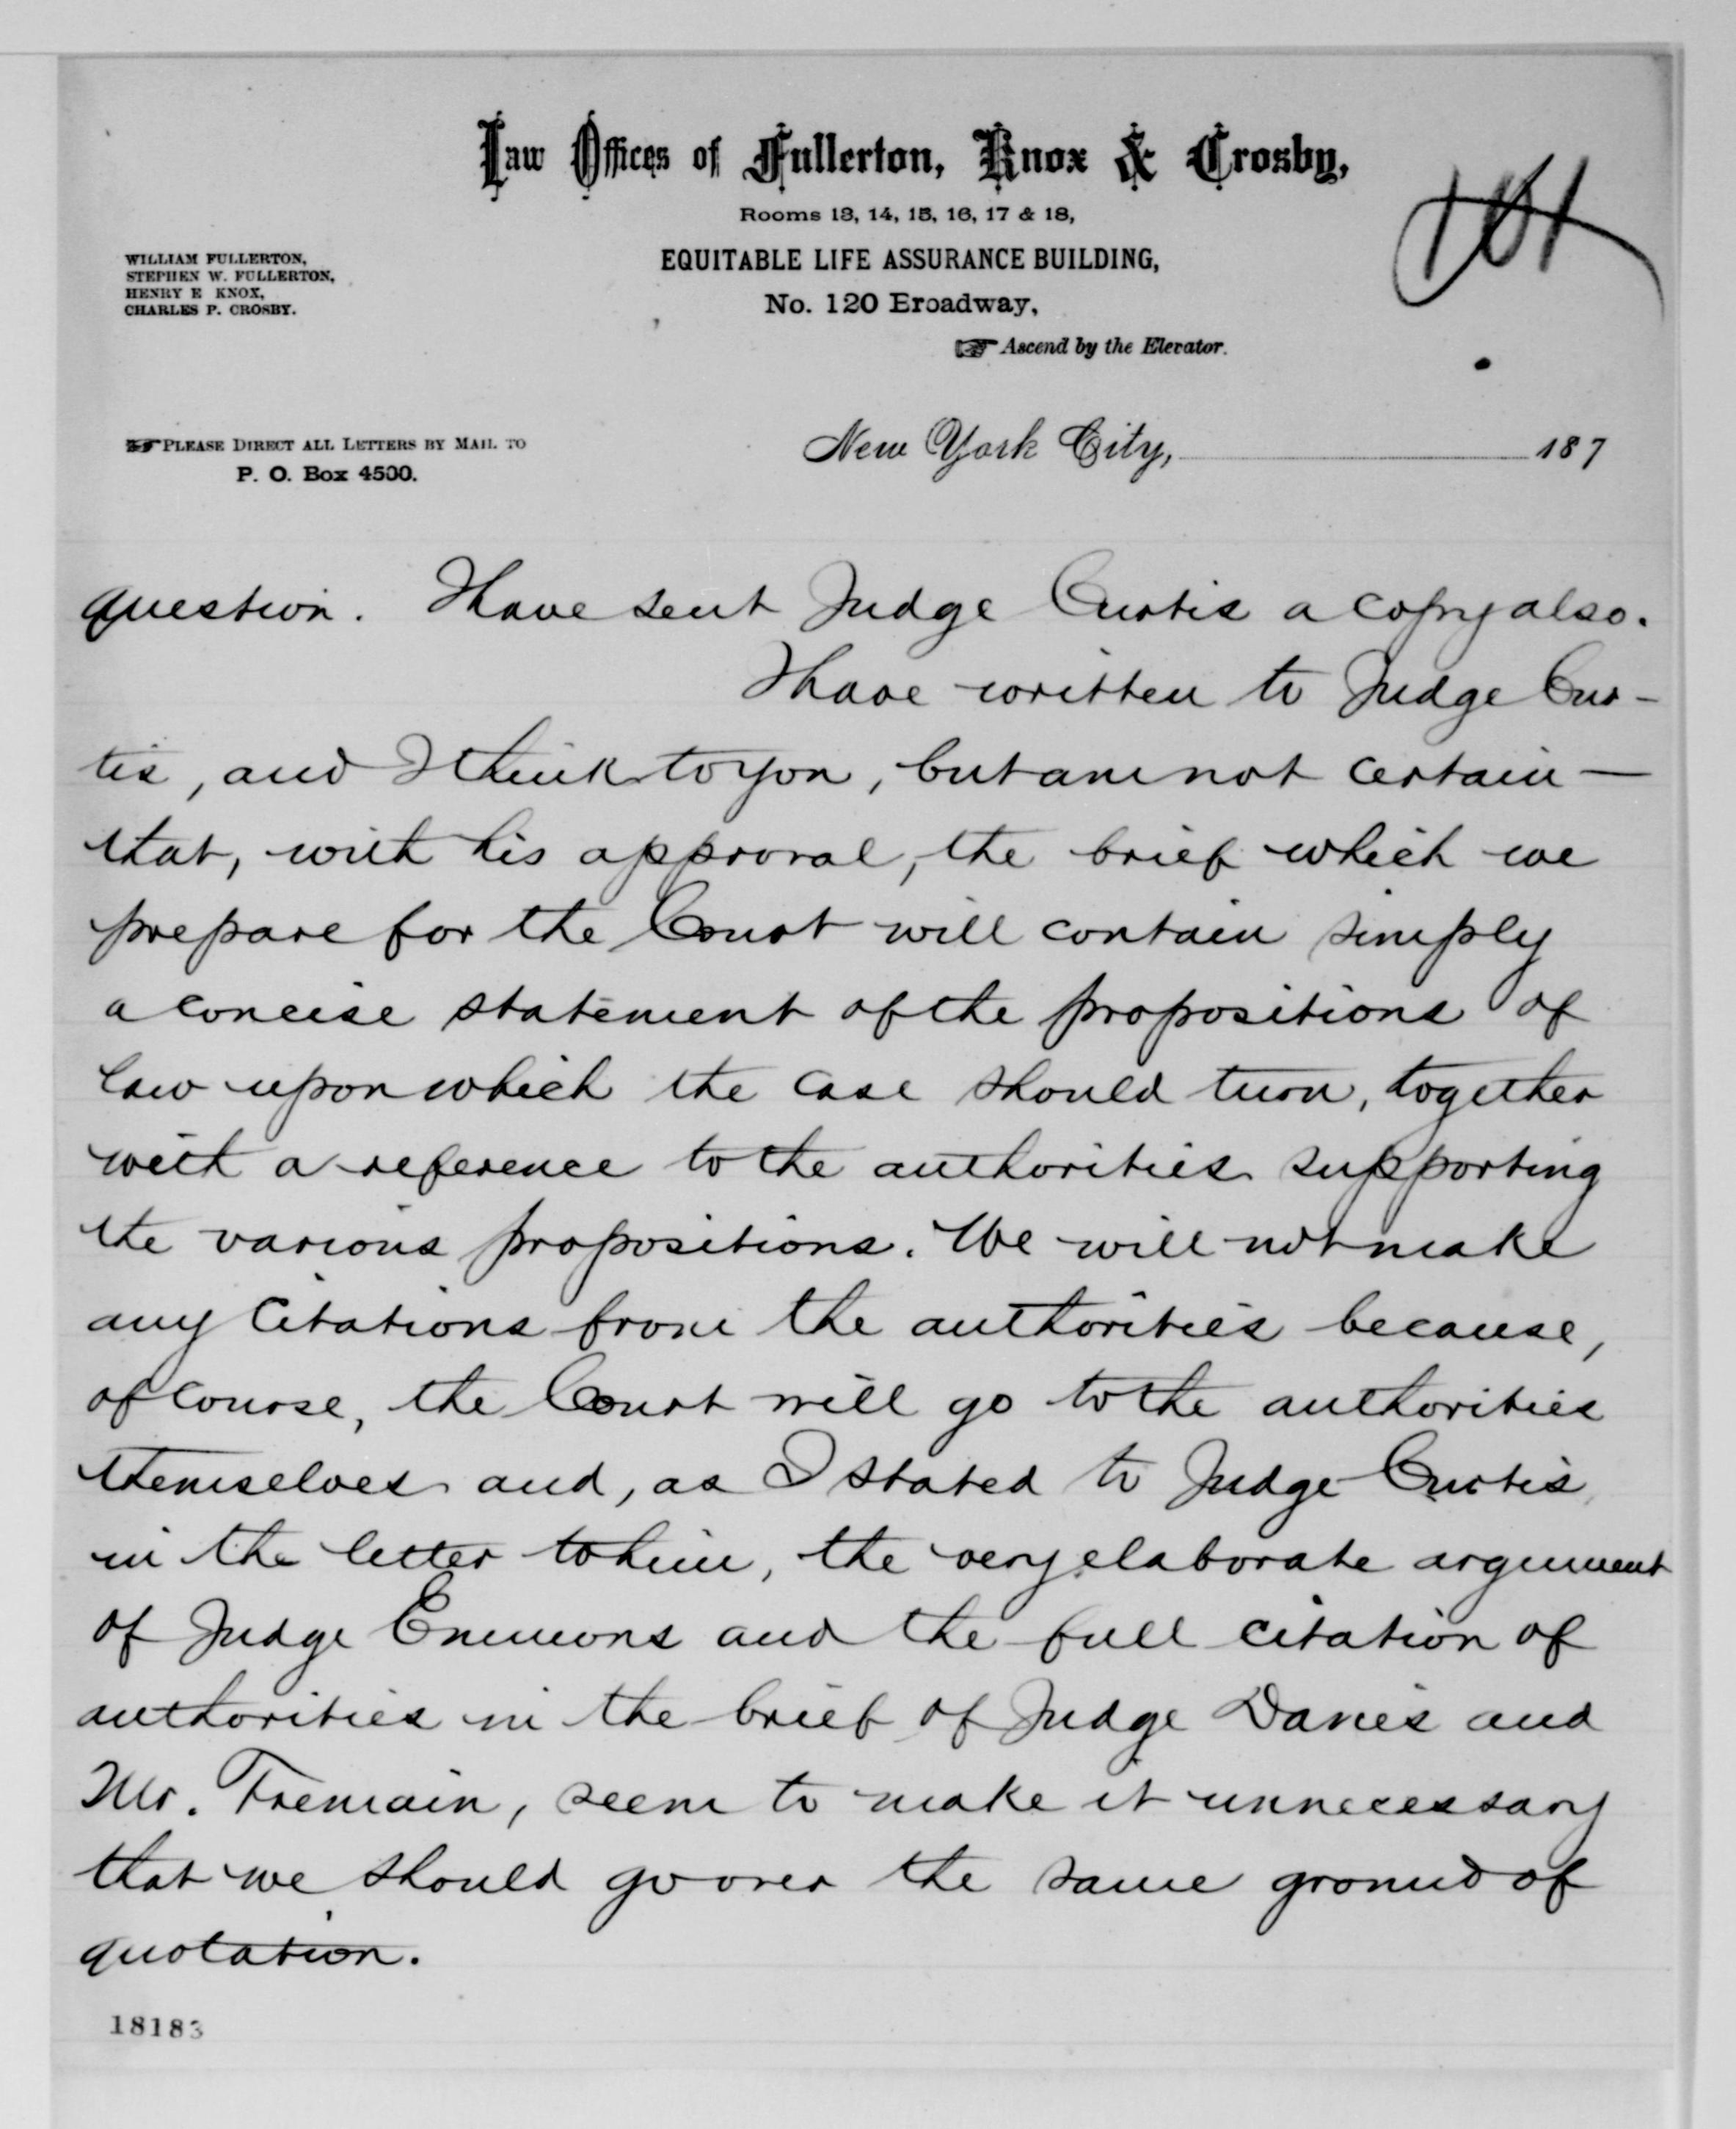 Law Offices of Fullerton, Knox & Crosby,
Rooms 13, 14, 15, 16, 17 & 18,
EQUITABLE LIFE ASSURANCE BUILDING,
No. 120 Broadway,
Ascend by the Elevator.
WILLIAM FULLERTON,
STEPHEN W. FULLERTON,
HENRY E KNOX,
CHARLES P. CROSBY.
PLEASE DIRECT ALL LETTERS BY MAIL TO
P. O. Box 4500.
New York City, 187
question. I have sent Judge Curtis a copy also.
I have written to Judge Cur-
tis, and I think to you, but am not certain —
that, with his approval, the brief which we
prepare for the Court will contain simply
a concise statement of the propositions of
law upon which the case should turn, together
with a reference to the authorities supporting
the various propositions. We will not make
any citations from the authorities because,
of course, the Court will go to the authorities
themselves and, as I stated to Judge Curtis
in the letter to him, the very elaborate argument
of Judge Emmons and the full citation of
authorities in the brief of Judge Davies and
Mr. Tremain, seem to make it unnecessary
that we should go over the same ground of
quotation.
18183